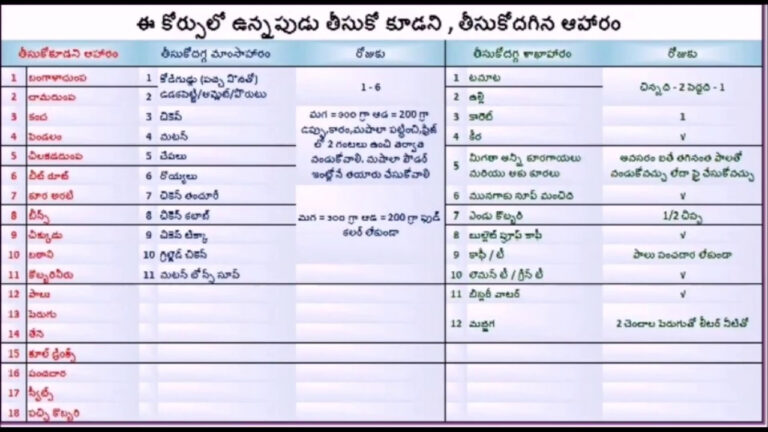 ఈ కోర్సులో ఉన్నపుడు తీసుకో కూడని , తీసుకోదగిన ఆహారం
తీసుకోకూడని ఆహారం తీసుకోదగ్గ మాంసాహారం రోజుకు తీసుకోదగ్గ శాఖాహారం రోజుకు
1 బంగాళాదుంప 1 కోడిగుడ్లు (పచ్చ సొనతో) 1 - 6 1 టమాట చిన్నది - 2 పెద్దది - 1
2 చామదుంప 2 ఉడకపెట్టి/ఆమ్లెట్/పొరుటు 2 ఉల్లి
3 కంద 3 చికెన్ మగ = 300 గ్రా ఆడ = 200 గ్రా 3 కారెట్ 1
4 పెండలం 4 మటన్ ఉప్పు,కారం,మసాలా పట్టించి,ఫ్రిజ్ 4 కీర √
5 చిలకడదుంప 5 చేపలు లో 2 గంటలు ఉంచి తర్వాత 5 మిగతా అన్ని కూరగాయలు అవసరం ఐతే తగినంత పాలతో
6 బీట్ రూట్ 6 రొయ్యలు వండుకోవాలి. మసాలా పౌడర్ మరియు ఆకు కూరలు వండుకోవచ్చు లేదా ఫ్రై చేసుకోవచ్చు
7 కూర అరటి 7 చికెన్ తందూరీ ఇంట్లోనే తయారు చేసుకోవాలి 6 మునగాకు సూప్ మంచిది √
8 బీన్స్ 8 చికెన్ కబాబ్ మగ = 300 గ్రా ఆడ = 200 గ్రా ఫుడ్ 7 ఎండు కొబ్బరి 1/2 చిప్ప
9 చిక్కుడు 9 చికెన్ టిక్కా కలర్ లేకుండా 8 బుల్లెట్ ప్రూఫ్ కాఫీ √
10 బఠాని 10 గ్రిల్డ్ చికెన్ 9 కాఫీ / టీ పాలు పంచదార లేకుండా
11 కొబ్బరినీరు 11 మటన్ బోన్స్ సూప్ 10 లెమన్ టీ / గ్రీన్ టీ √
12 పాలు 11 బిస్లరీ వాటర్ √
13 పెరుగు 12 మజ్జిగ 2 చెంచాల పెరుగుతో లీటర్ నీటితో
14 తేన
15 కూల్ డ్రింక్స్
16 పంచదార
17 స్వీట్స్
18 పచ్చి కొబ్బరి